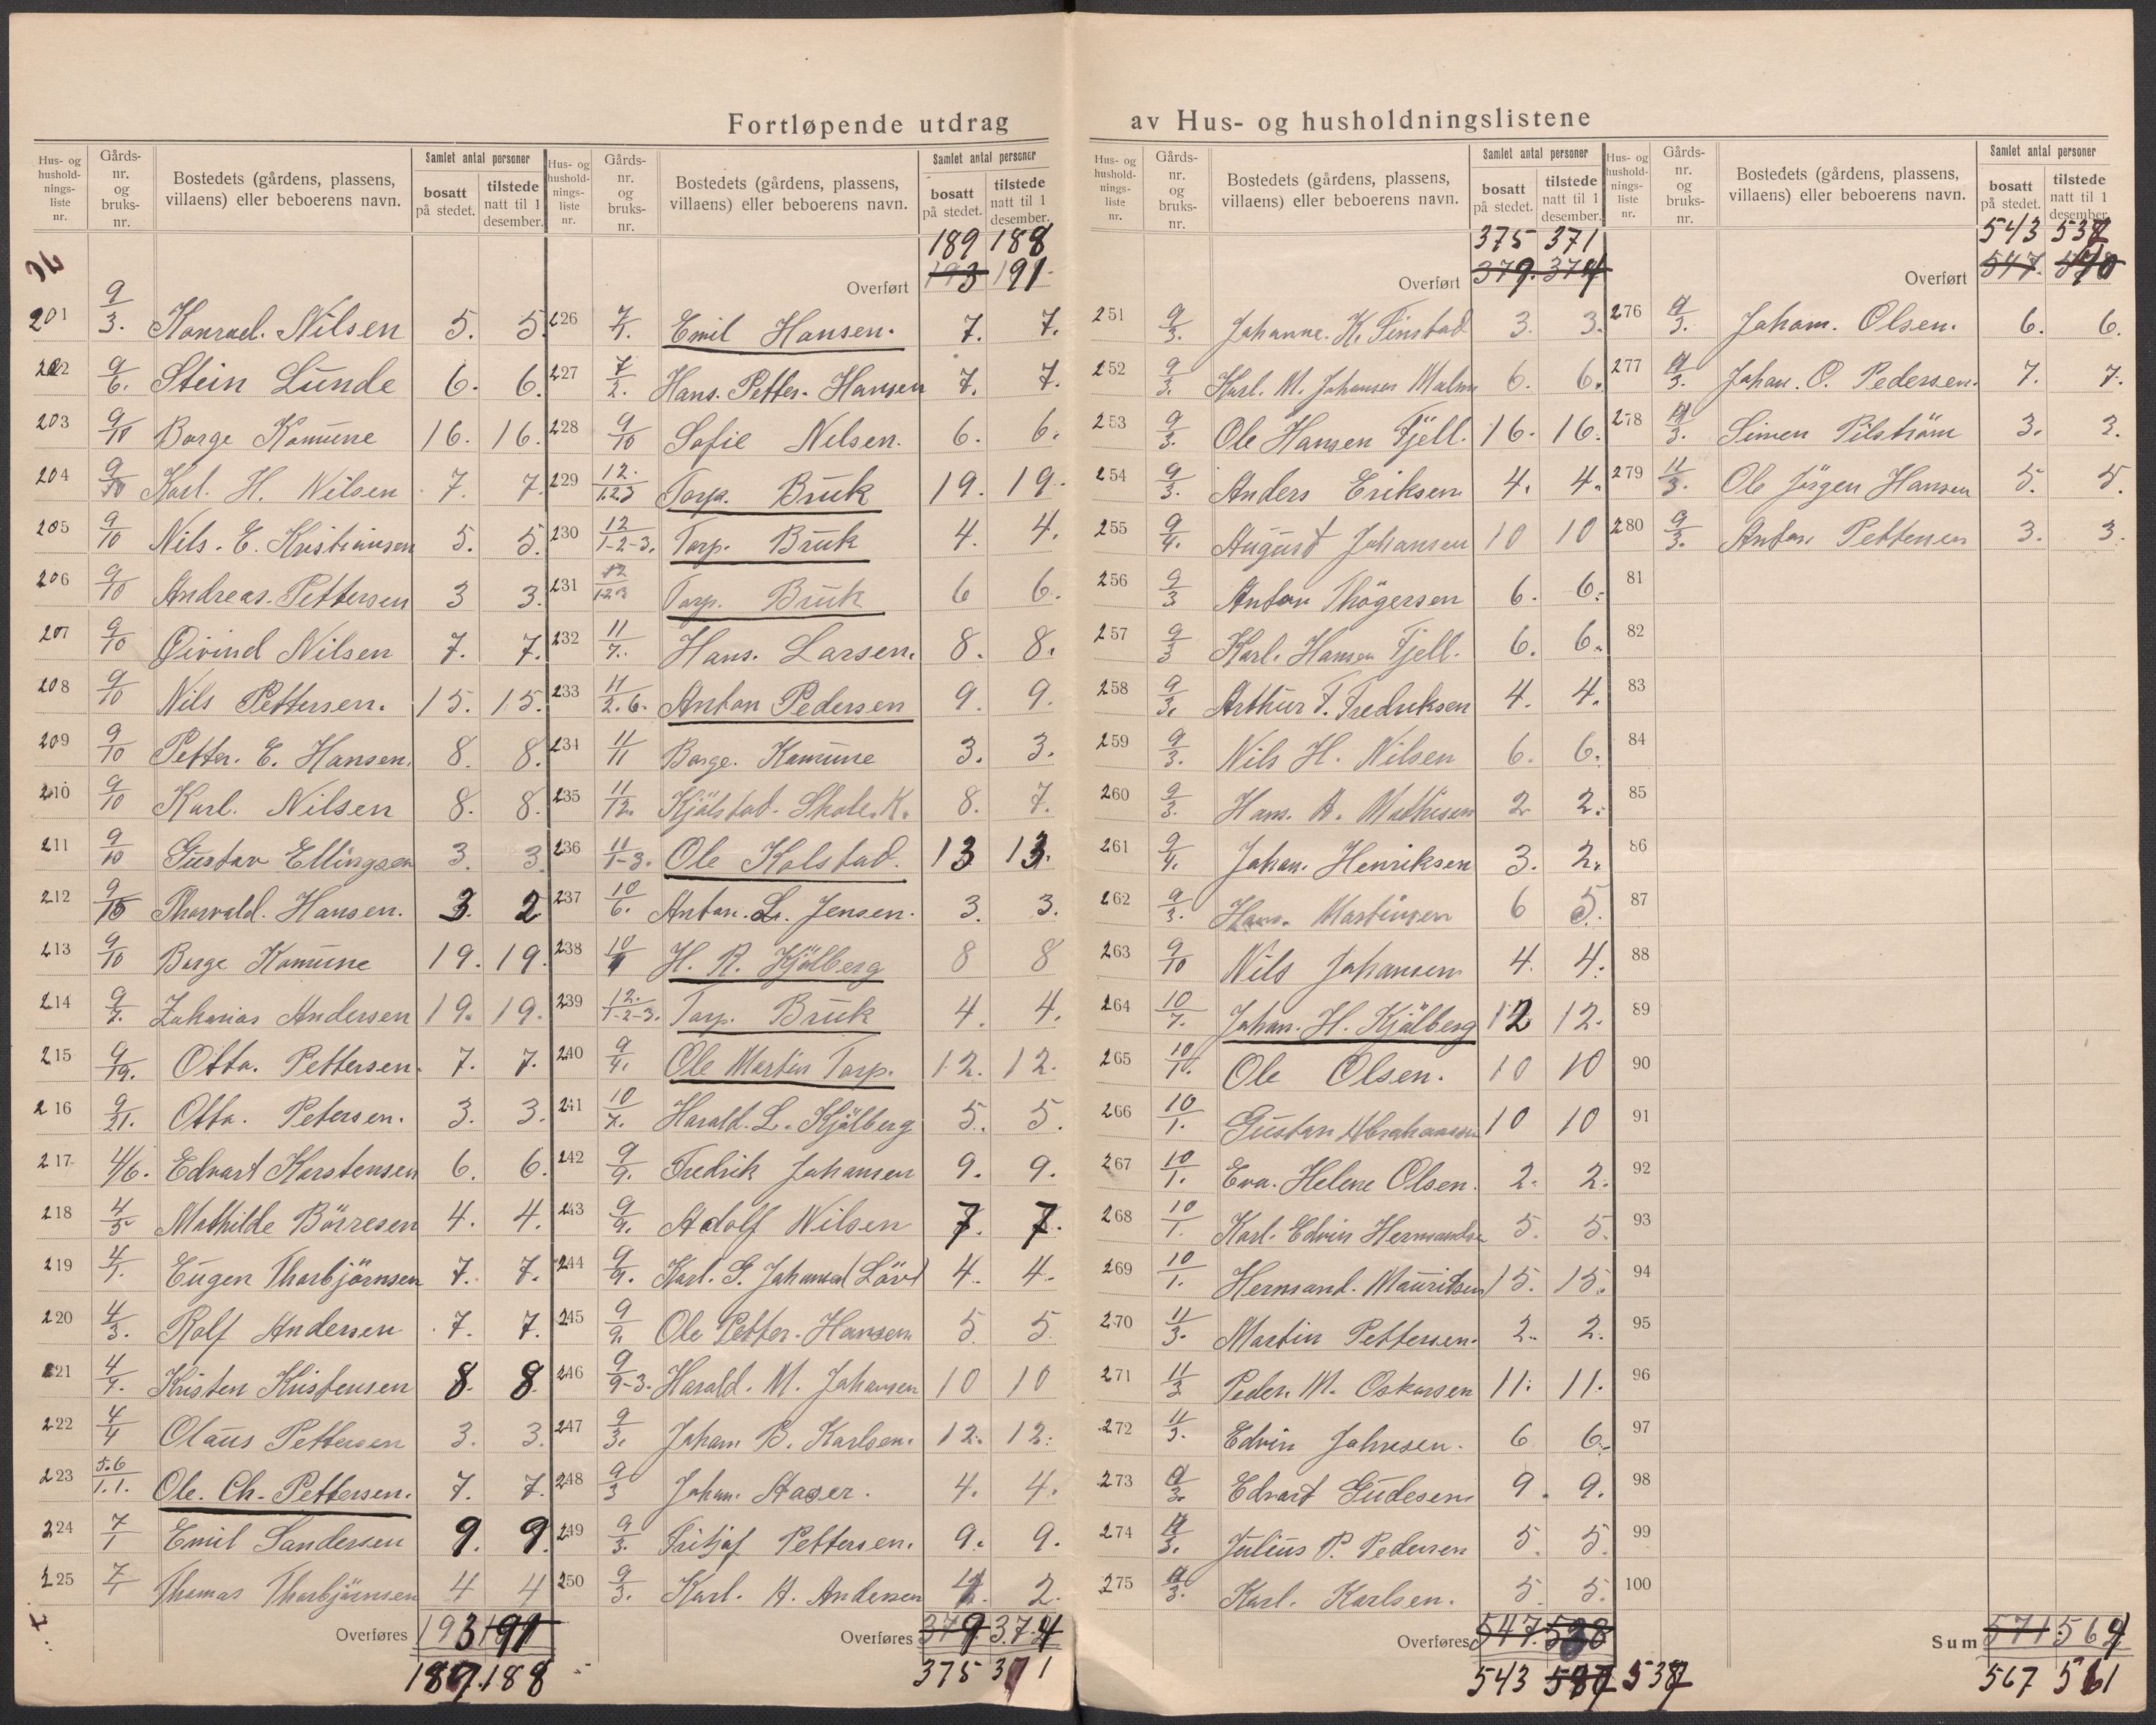 Fortløpende utdrag av Hus- og husholdningslistene
Hus- og husholdnings-liste nr. | Gårds-nr. og bruks-nr. | Bostedets (gårdens, plassens, villaens) eller beboerens navn. | Samlet antal personer | bosatt på stedet. | tilstede natt til 1 desember.
201 9/3. Konrad. Nilsen 5. 5.
202 9/6. Stein Lunde 6. 6.
203 9/10 Borge Komune 16. 16.
204 9/10 Karl. H. Nilsen 7. 7.
205 9/10 Nils. E. Kristiansen 5. 5.
206 9/10 Andreas. Pettersen 3 3.
207 9/10 Øivind Nilsen 7. 7.
208 9/10 Nils Pettersen. 15. 15.
209 9/10 Petter. E. Hansen. 8. 8.
210 9/10 Karl. Nilsen 8. 8.
211 9/10 Gustav Ellingsen 3. 3
212 9/10 Thorvald. Hansen. 3. 2
213 9/10 Borge Komune 19. 19.
214 9/7. Zakarias Andersen 19. 19.
215 9/19. Otto. Pettersen. 7. 7.
216 9/21. Otto. Petersen. 3. 3.
217 4/6. Edvart Karstensen 6. 6.
218 4/5 Mathilde Börresen 4. 4.
219 4/1. Eugen Thorbjörnsen 7. 7.
220 4/3. Rolf Andersen 7. 7.
221 4/4. Kristen Kristensen 8. 8.
222 4/4 Olaus Pettersen 3. 3.
223 5.6/1.1. Ole. Ch. Pettersen. 7. 7.
224 7/1 Emil Sandersen 9. 9.
225 7/1 Thomas Thorbjörnsen 4 4
Overføres 193 191
189. 188
Hus- og husholdnings-liste nr. | Gårds-nr. og bruks-nr. | Bostedets (gårdens, plassens, villaens) eller beboerens navn. | Samlet antal personer | bosatt på stedet. | tilstede natt til 1 desember.
189 188
Overført 193 191
226 7/1. Emil Hansen. 7. 7.
227 7/2. Hans. Petter. Hansen 7. 7.
228 9/10 Sofie Nilsen. 6. 6.
229 12./1.2.3 Torp. Bruk 19. 19.
230 12/1-2-3. Torp. Bruk 4. 4.
231 12/1.2.3 Torp. Bruk 6 6.
232 11/7. Hans. Larsen. 8. 8.
233 11/2.6. Anton Pedersen 9. 9.
234 11/11 Borge. Komune 3. 3.
235 11/12. Kjölstad. Skole.K. 8. 7.
236 11/1-3. Ole Kolstad. 13 13.
237 10/6. Anton. L. Jensen. 3. 3.
238 10/4 H. R. Kjölberg 8 8
239 12./1-2-3. Torp. Bruk 4. 4.
240 9/4. Ole Martin Torp. 12. 12.
241 10/7. Harald. L. Kjölberg 5. 5.
242 9/9. Fredrik Johansen 9. 9.
243 9/9. Adolf Nilsen 7. 7.
244 9/9. Karl. G. Johansen 4. 4.
245 9/9. Ole Petter. Hansen 5. 5.
246 9/9-3. Harald. M. Johansen 10 10
247 9/3. Johan B. Karlsen. 12. 12.
248 9/3 Johan. 4. 4.
249 9/3. Fritjof Pettersen. 9. 9.
250 9/3. Karl. A. Andersen 2.
Overføres 379. 374
375 371
Hus- og husholdnings-liste nr. | Gårds-nr. og bruks-nr. | Bostedets (gårdens, plassens, villaens) eller beboerens navn. | Samlet antal personer | bosatt på stedet. | tilstede natt til 1 desember.
375 371
Overført 379. 374
251 9/3. Johanne. K. 3. 3.
252 9/3. Karl. M. Johansen Malm 6. 6.
253 9/3. Ole Hansen Fjell. 16. 16.
254 9/3. Anders Eriksen 4. 4.
255 9/4. August Johansen 10 10
256 9/3 Anton Thögersen 6. 6.
257 9/3 Karl. Hansen Fjell. 6. 6.
258 9/3. Arthur F. Fredriksen 4. 4.
259 9/3. Nils H. Nilsen 6. 6.
260 9/3. Hans. A. Mathisen 2 2.
261 9/4. Johan. Henriksen 3. 2.
262 9/3. Hans. Martinsen 6 5.
263 9/10 Nils Johansen 4. 4.
264 10/7. Johan. H. Kjölberg 12 12.
265 10/10. Ole Olsen. 10 10
266 10/1. Gustav Abrahamsen 10 10
267 10/1. Eva. Helene Olsen. 2. 2.
268 10/1. Karl. Edvin 5. 5.
269 10/1. Hermand. Mauritsen 15. 15.
270 11/3. Martin Pettersen. 2. 2.
271 11/3 Peder. M. Oskarsen 11. 11.
272 11/3. Edvin Johnsen. 6 6.
273 9/3. Edvart Gudesen 9. 9.
274 9/3. Julius P. Pedersen 5. 5.
275 9/3. Karl. Karlsen. 5. 5.
Overføres 547. 538
543 537
Hus- og husholdnings-liste nr. | Gårds-nr. og bruks-nr. | Bostedets (gårdens, plassens, villaens) eller beboerens navn. | Samlet antal personer | bosatt på stedet. | tilstede natt til 1 desember.
543 537
Overført 547. 540
276 9/3. Johan. Olsen. 6. 6.
277 9/3. Johan. O. Pedersen. 7. 7.
278 9/3. Simen Pilström 3. 3.
279 11/3. Ole Jörgen Hansen 5. 5.
280 9/3. Anton Pettersen 3. 3.
81
82
83
84
85
86
87
88
89
90
91
92
93
94
95
96
97
98
99
100
Sum 571. 564
567 561